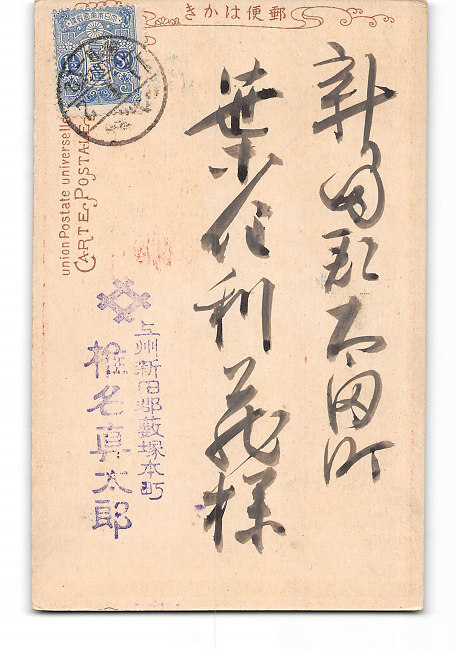 きかは便郵
新田郡太田町
葉住利蔵様
上州新田郡藪塚本町
椎名真太郎
Union Postale universelle
CARTE POSTALE
1½ Sn